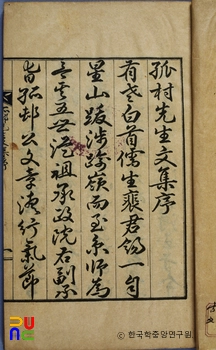 孤村先生文集序
有老白首儒生裵君錫一自
星山跋涉踰嶺而至京師為
言其五世從祖承政院右副承
旨孤村公文章德行氣節
한국학중앙연구원